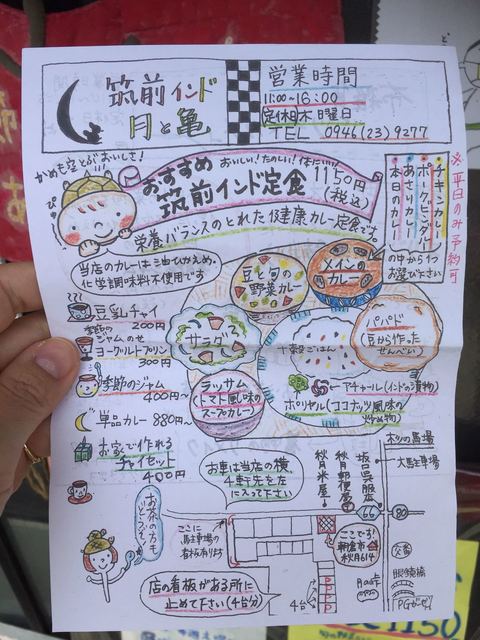 筑前インド
月と亀
営業時間
11:00~16:00
定休 木曜日
TEL 0946(23)9277
かめも空とぶおいしさ!
おすすめ おいしい!たのしい!体にいい!
筑前インド定食 1150円
(税込)
栄養バランスのとれた健康カレー定食です。
※平日のみ予約可
チキンカレー
ポークビンダルー
あさりカレー
本日のカレー
の中から1つ
お選び下さい
当店のカレーは油ひかえめ、
化学調味料不使用です
豆と旬の
野菜カレー
メインの
カレー
サラダ
十穀ごはん
パパド
(豆から作った
せんべい)
ラッサム
(トマト風味の
スープカレー)
アチャール(インドの漬物)
ポリヤル(ココナッツ風味の
炒め物)
豆乳チャイ
200円
季節の
ジャムのせ
ヨーグルトプリン
300円
季節のジャム
400円~
単品カレー 880円~
お家で作れる
チャイセット
400円
お茶の方も
どうぞ!
お車は当店の横、
4軒先を左
に入って下さい
秋月米屋
秋月郵便局
坂口呉服店
66
杉の馬場
大駐車場
80
ここに
駐車場の
看板有ります
ここです!
朝倉市
秋月614
交番
眼鏡橋
店の看板がある所に
止めて下さい(4台分)
4台
P
P
P
P